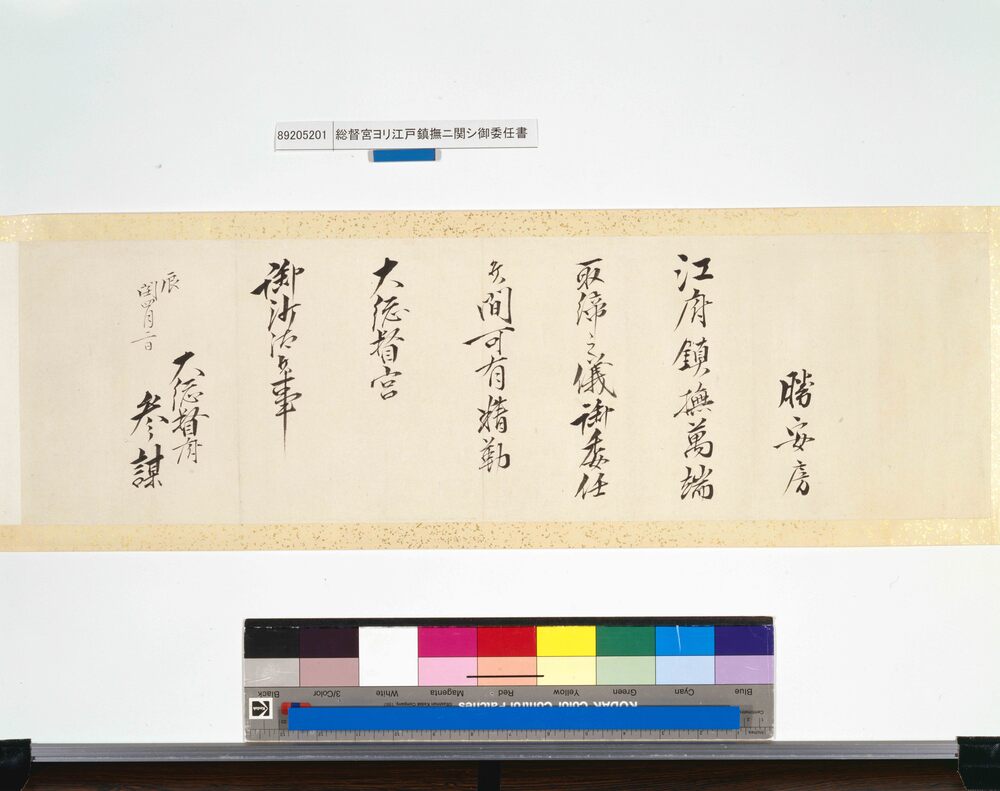 89205201 総督宮ヨリ江戸鎮撫ニ関シ御委任書
勝安房
江府鎮撫萬端
取締之儀御委任
候間可有精勤
大総督宮
御沙汰候事
辰
閏四月二日
大総督府
参謀
Blue
Cyan
Green
Yellow
Red
Magenta
White
3/Color
Black
KODAK Color Control Patches
Kodak